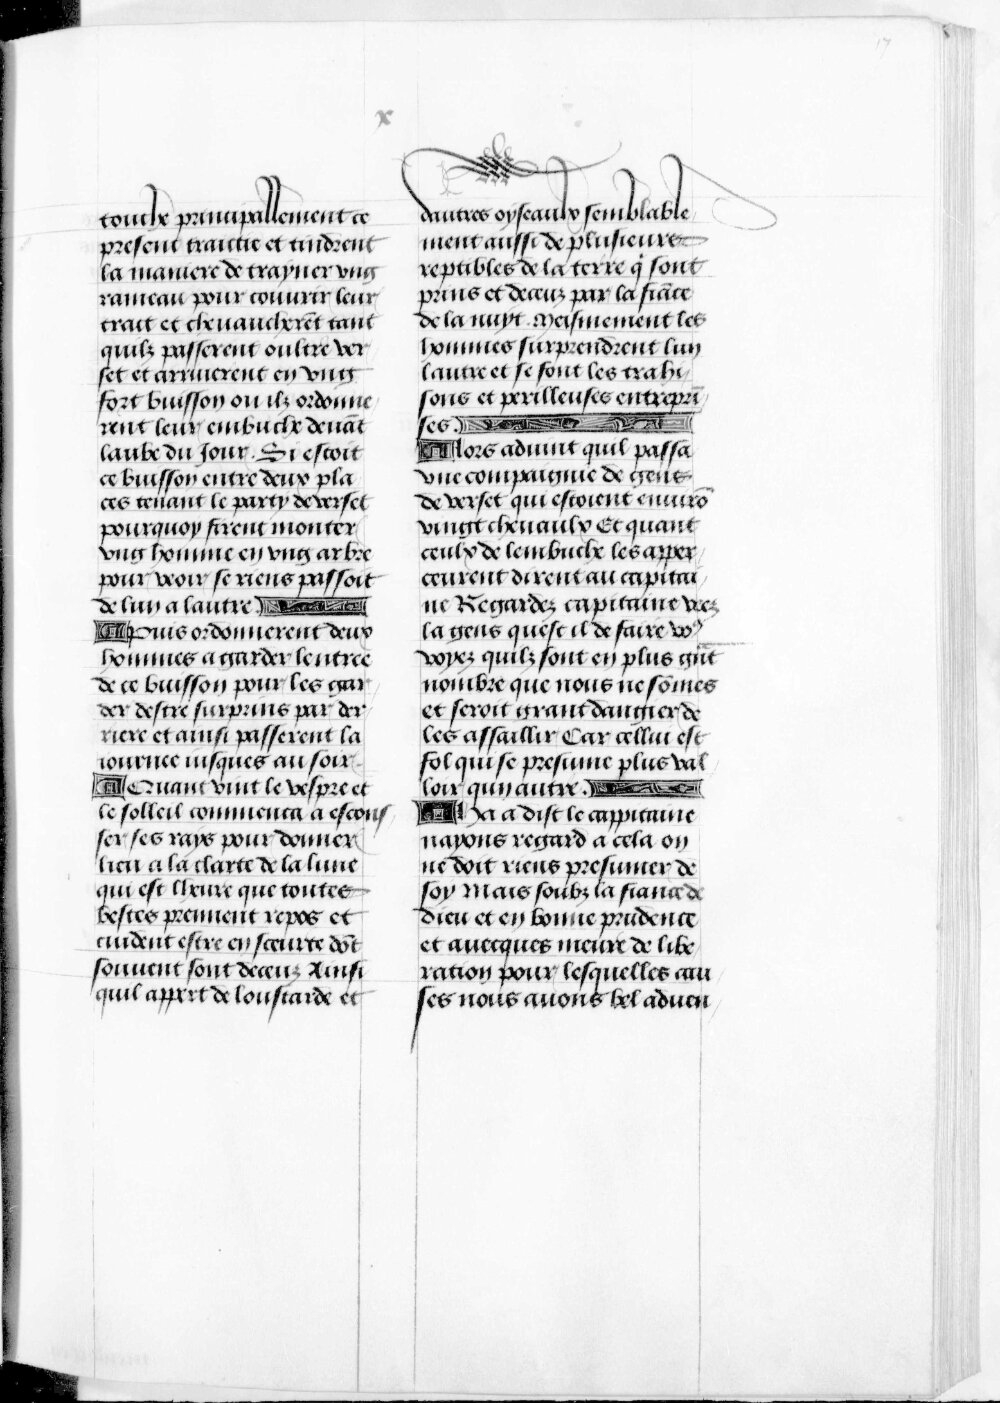 17
x
touche principallement ce
present traictie et tindrent
la maniere de trayner vng
rameau pour couurir leur
trait et cheuaucherēt tant
quilz passerent oultre ver
set et arriuerent en vng
fort buisson ou ilz ordonne
rent leur embuche deuāt
laube du Jour. Si estoit
ce buisson entre deux pla
ces tenant le party de verset
pourquoy firent monter
vng homme en vng arbre
pour veoir se riens passoit
de lun a lautre.
Puis ordonnerent deux
hommes a garder lentree
de ce buisson pour les gar
der destre surprins par der
riere et ainsi passerent la
iournee iusques au soir
Quant vint le vespre et
le solleil commenca a escons
ser ses rays pour donner
lieu a la clarte de la lune
qui est lheure que toutes
bestes prennent repos et
cuident estre en sceurte dōt
souuent sont deceuz Ainsi
quil appert de loustarde et
dautres oyseaulx semblable
ment aussi de plusieurs
reptibles de la terre q̄ sont
prins et deceuz par la fiāce
de la nuyt. Meismement les
hommes surprendrent lun
lautre et se sont les trahi
sons et perilleuses entrepri
ses.
Alors aduint quil passa
vne compaignie de gens
de verset qui estoient enuirō
vingt cheuaulx Et quant
ceulx de lembuche les apper
ceurent dirent au capitai
ne Regardez capitaine vez
la gens quest il de faire voꝰ
voyez quilz sont en plus gn̄t
nombre que nous ne sōmes
et seroit grant dangier de
les assaillir Car cellui est
fol qui se presume plus val
loir qun autre.
Ha a dist le cappitaine
nayons regard a cela on
ne doit riens presumer de
soy Mais soubz la fiance de
dieu et en bonne prudence
et auecques meure de libe
ration pour lesquelles cau
ses nous auons bel aduen